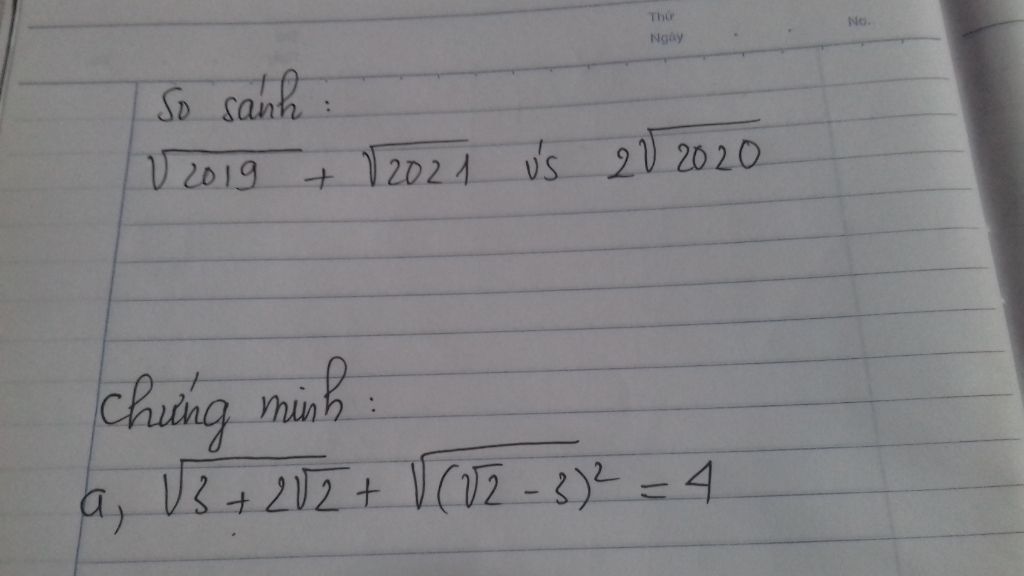 Thứ
No.
Ngày
So sánh:
√2019 + √2021 v's 2√2020
Chứng minh:
a, √3+2√2 + √(√2-3)² = 4